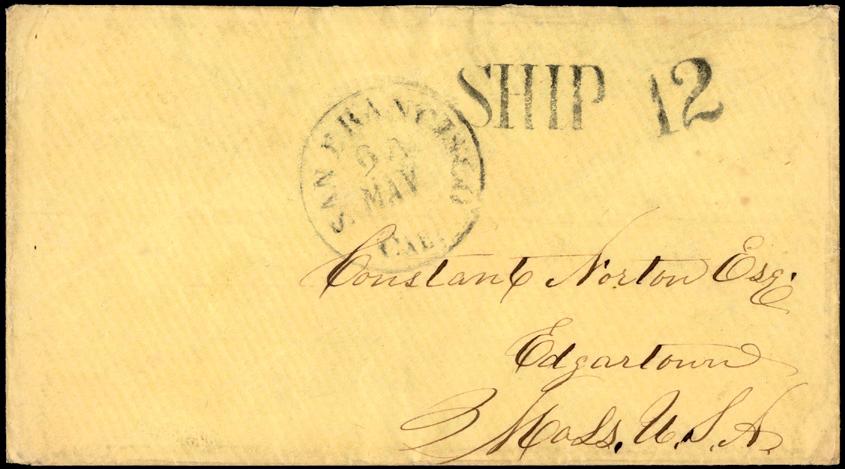 SHIP 12
SAN FRANCISCO
MAY
CAL.
Constant Norton Esq.
Edgartown
Mass. U.S.A.